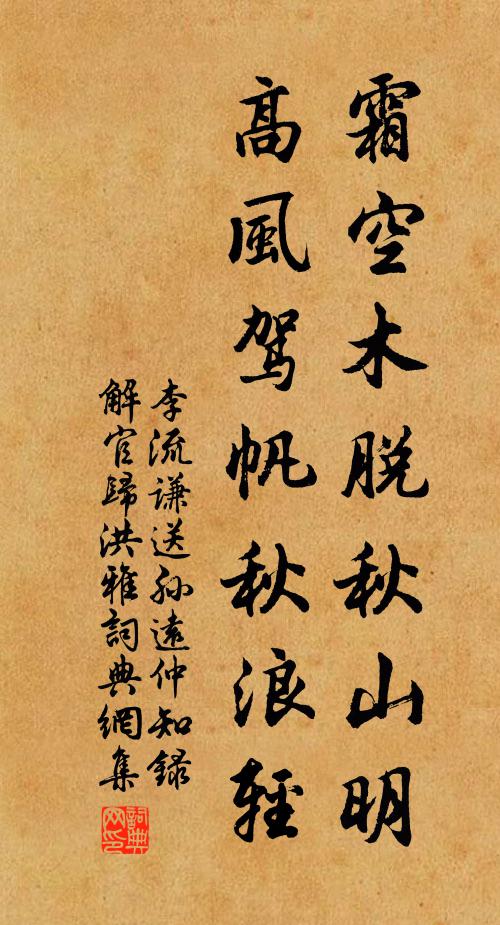 霜空木脱秋山明
高風駕帆秋浪輕
李流謙送孙遠仲知錄
解官歸洪雅詞典網集
詞典
网印